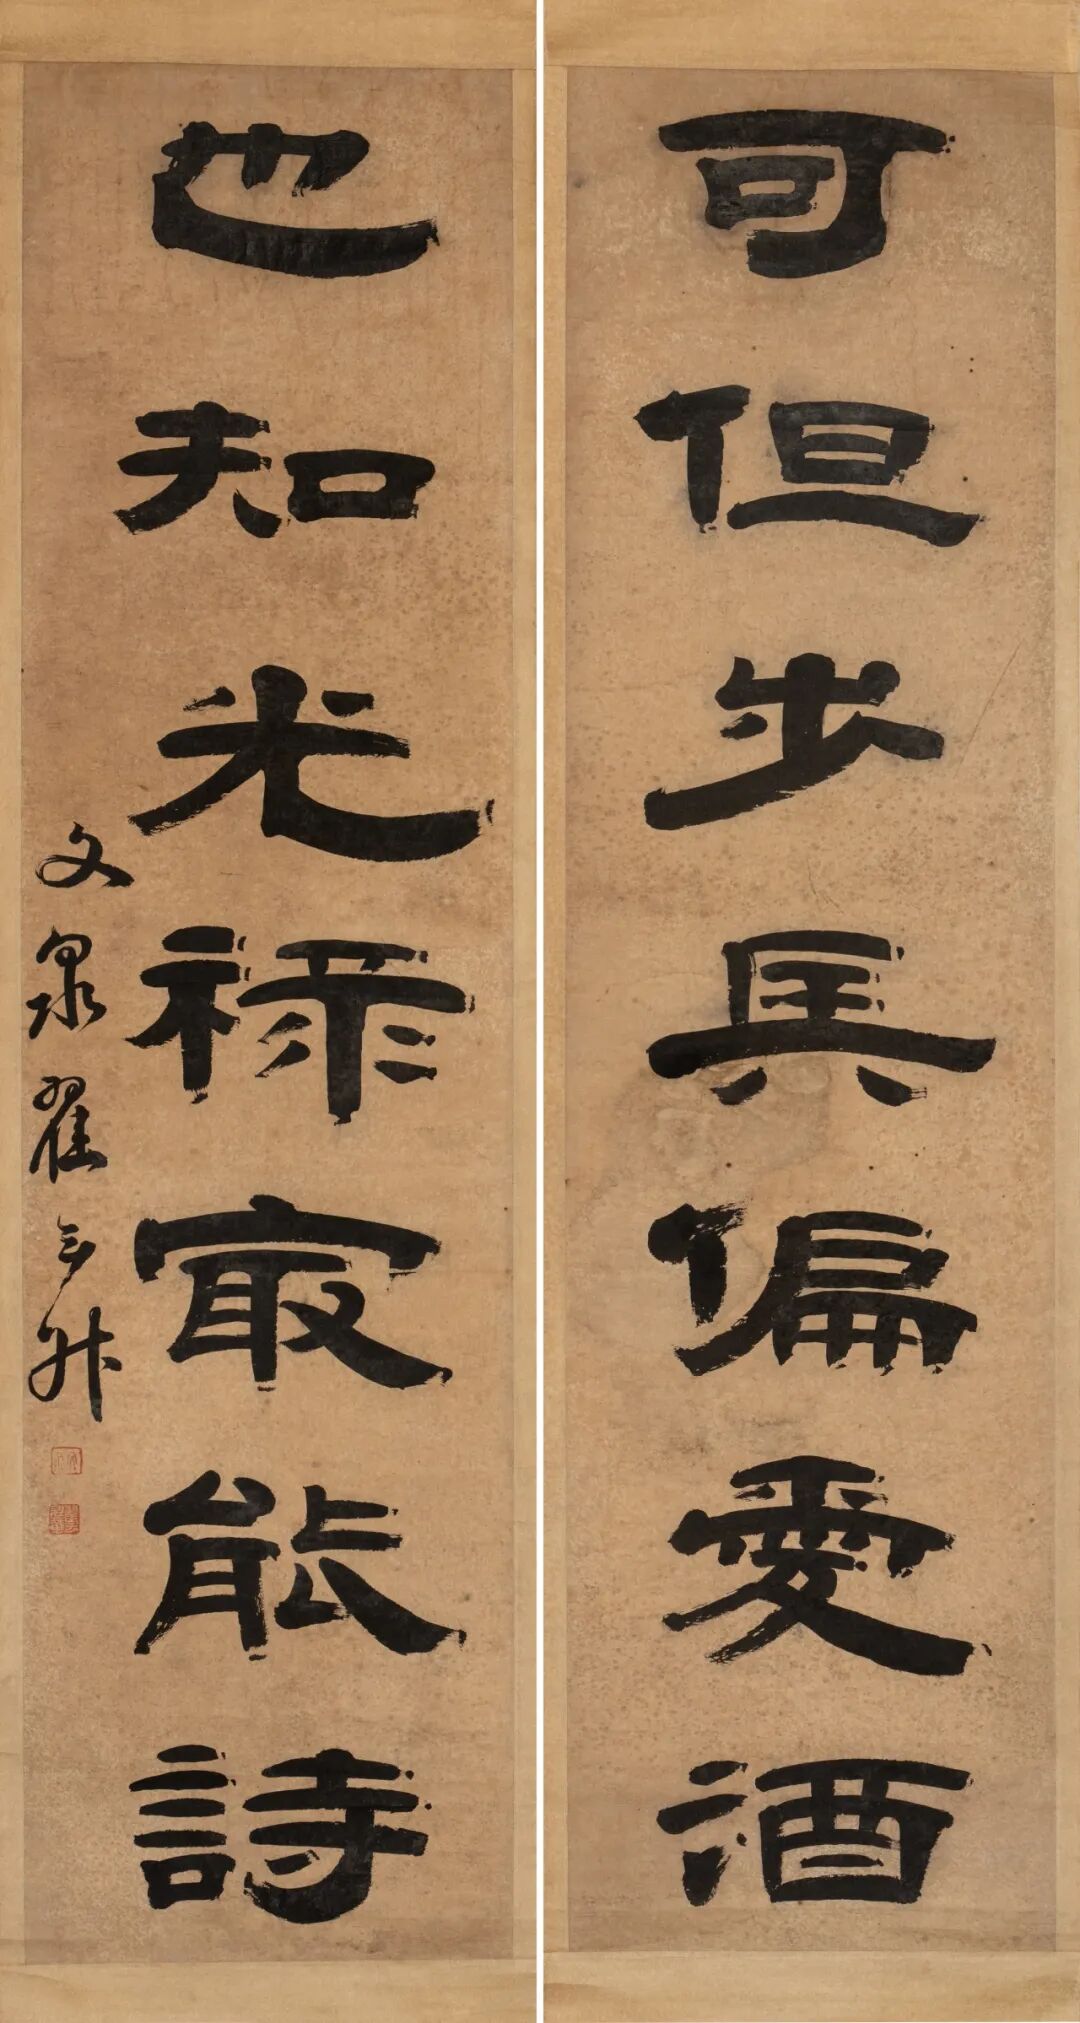 可但步兵偏愛酒
也知光祿最能詩
文泉翟云升